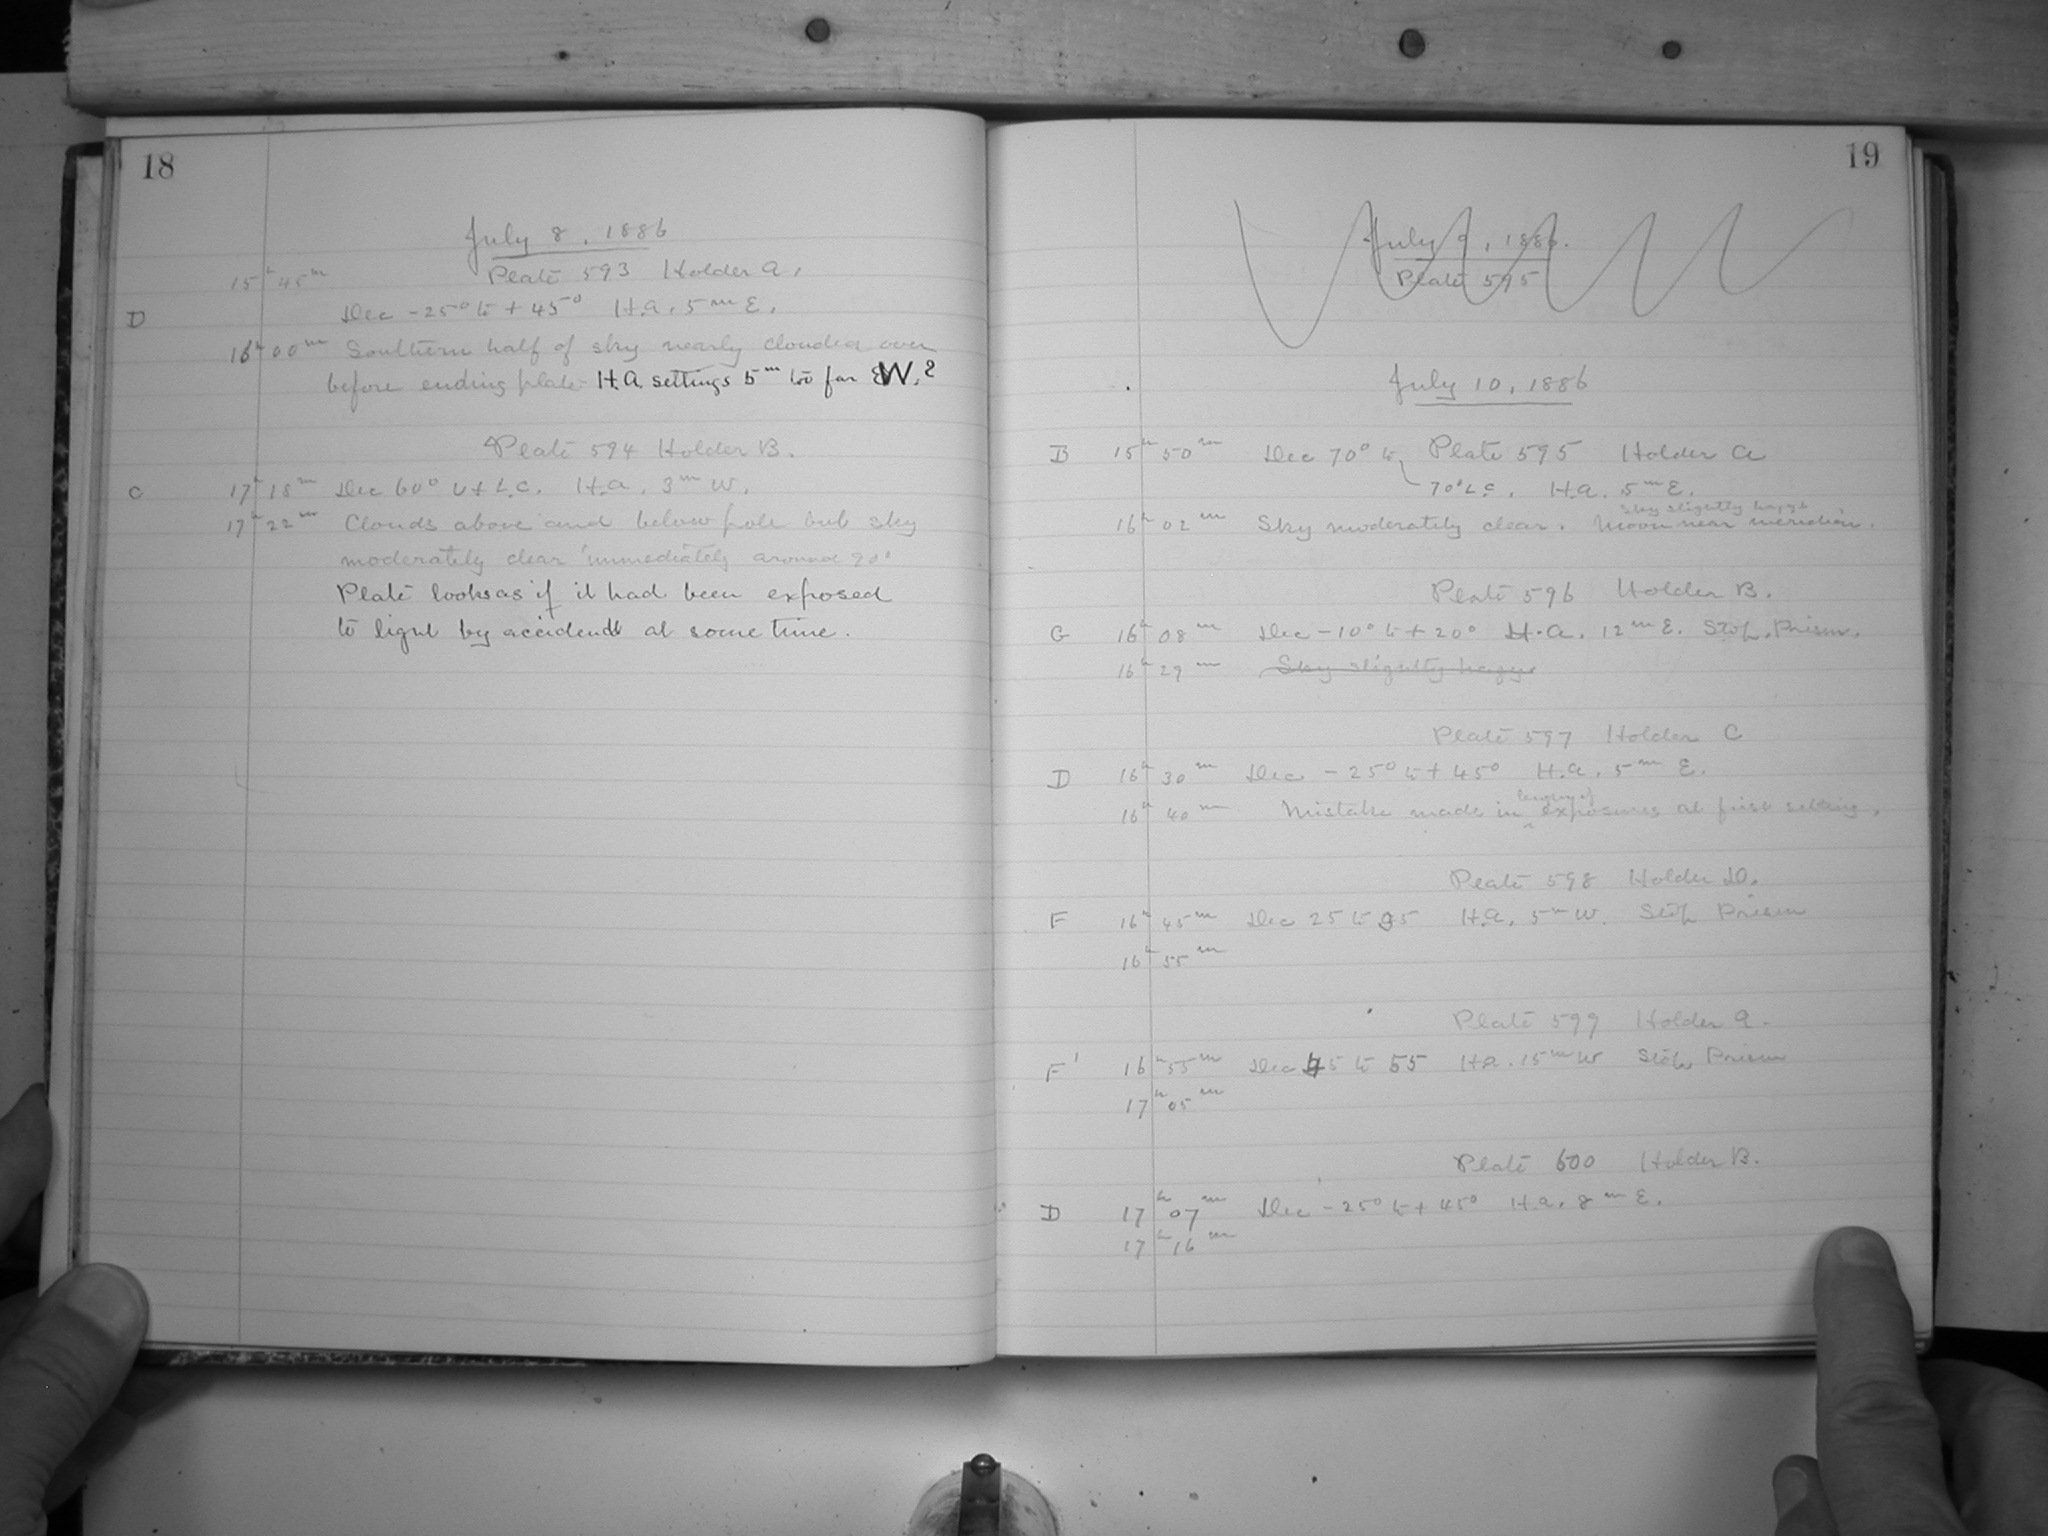 18
July 8, 1886
15h 45m Plate 593 Holder A.
D Dec -25° to +45° H.A. 5m E.
16h 00m Southern half of sky nearly clouded over
before ending plate H.A. settings 5m too far W.?
Plate 594 Holder B.
C 17h 18m Dec 60° U & L.C. H.A. 3m W.
17h 22m Clouds above and below pole but sky
moderately clear immediately around 90°
Plate looks as if it had been exposed
to light by accident at some time.
19
July 9, 1886.
Plate 595
July 10, 1886
B 15h 50m Dec 70° to Plate 595 Holder A
70° L.C. H.A. 5m E.
Sky slightly hazy
16h 02m Sky moderately clear. Moon near meridian.
Plate 596 Holder B.
G 16h 08m Dec -10° to +20° H.A. 12m E. Stop, Prism.
16h 29m Sky slightly hazy
Plate 597 Holder C
D 16h 30m Dec -25° to +45° H.A. 5m E.
16h 40m Mistake made in length of exposures at first setting.
Plate 598 Holder D.
F 16h 45m Dec 25 to 35 H.A. 5m W. Stop Prism
16h 55m
Plate 599 Holder A.
F' 16h 55m Dec 45 to 55 H.A. 15m W Stop Prism
17h 05m
Plate 600 Holder B.
D 17h 07m Dec -25° to +45° H.A. 8m E.
17h 16m